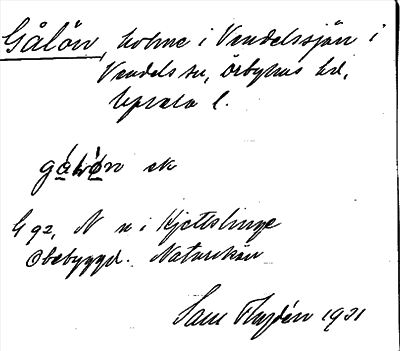 Gålön, holme i Vendelssjön i
Vendels sn, Örbyhus hd,
Uppsala l.
gålön sk
G 92, N n i Hjettslinge
Obebyggd. Naturskön
Sam Flodén 1931